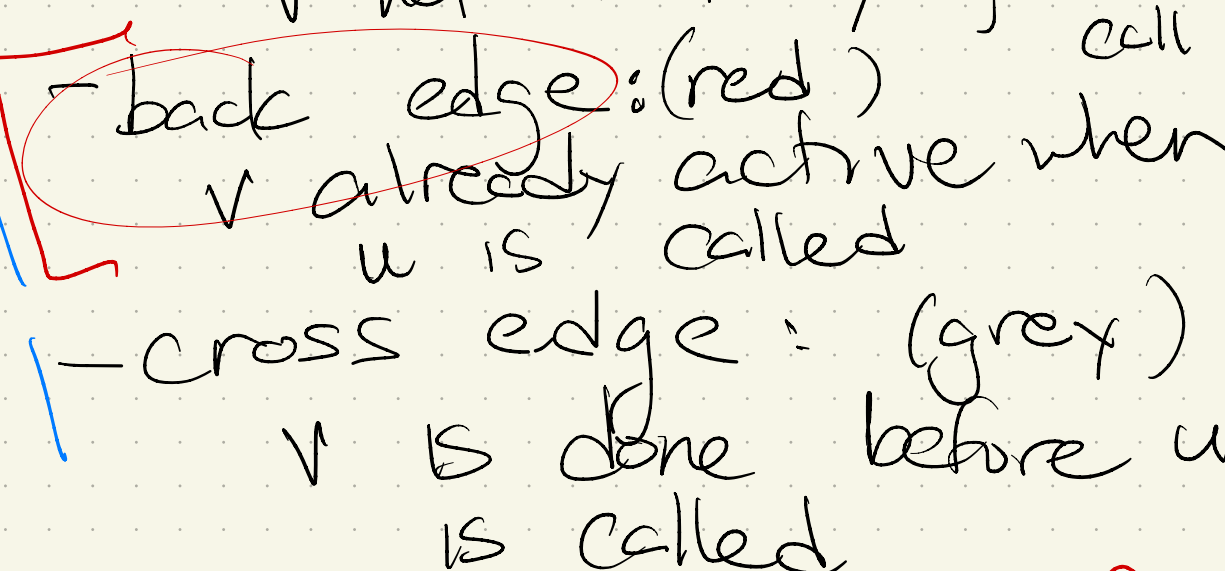 call
- back edge : (red)
v already active when
u is called
- cross edge : (grey)
v is done before u
is called